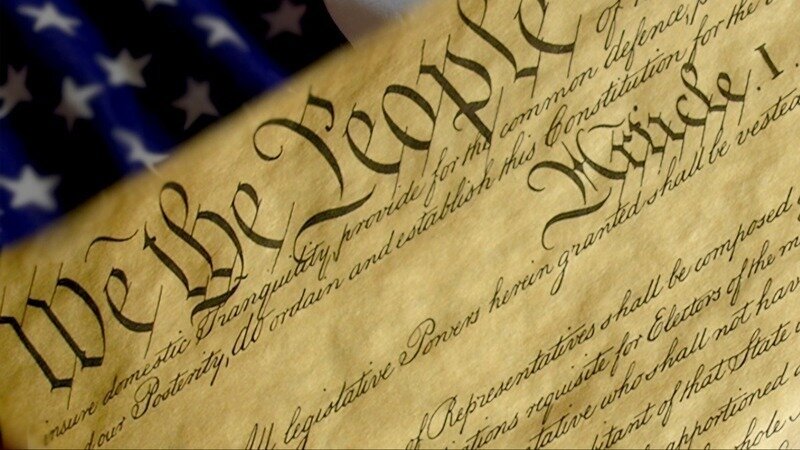 We the People
of
insure domestic Tranquility, provide for the common defence,
d our Posterity, do ordain and establish this Constitution for the
Article. I.
All legislative Powers herein granted shall be vested
of Representatives shall be composed
ations requisite for Electors of the m
tative who shall not hav
bitant of that State
apportioned a
whole